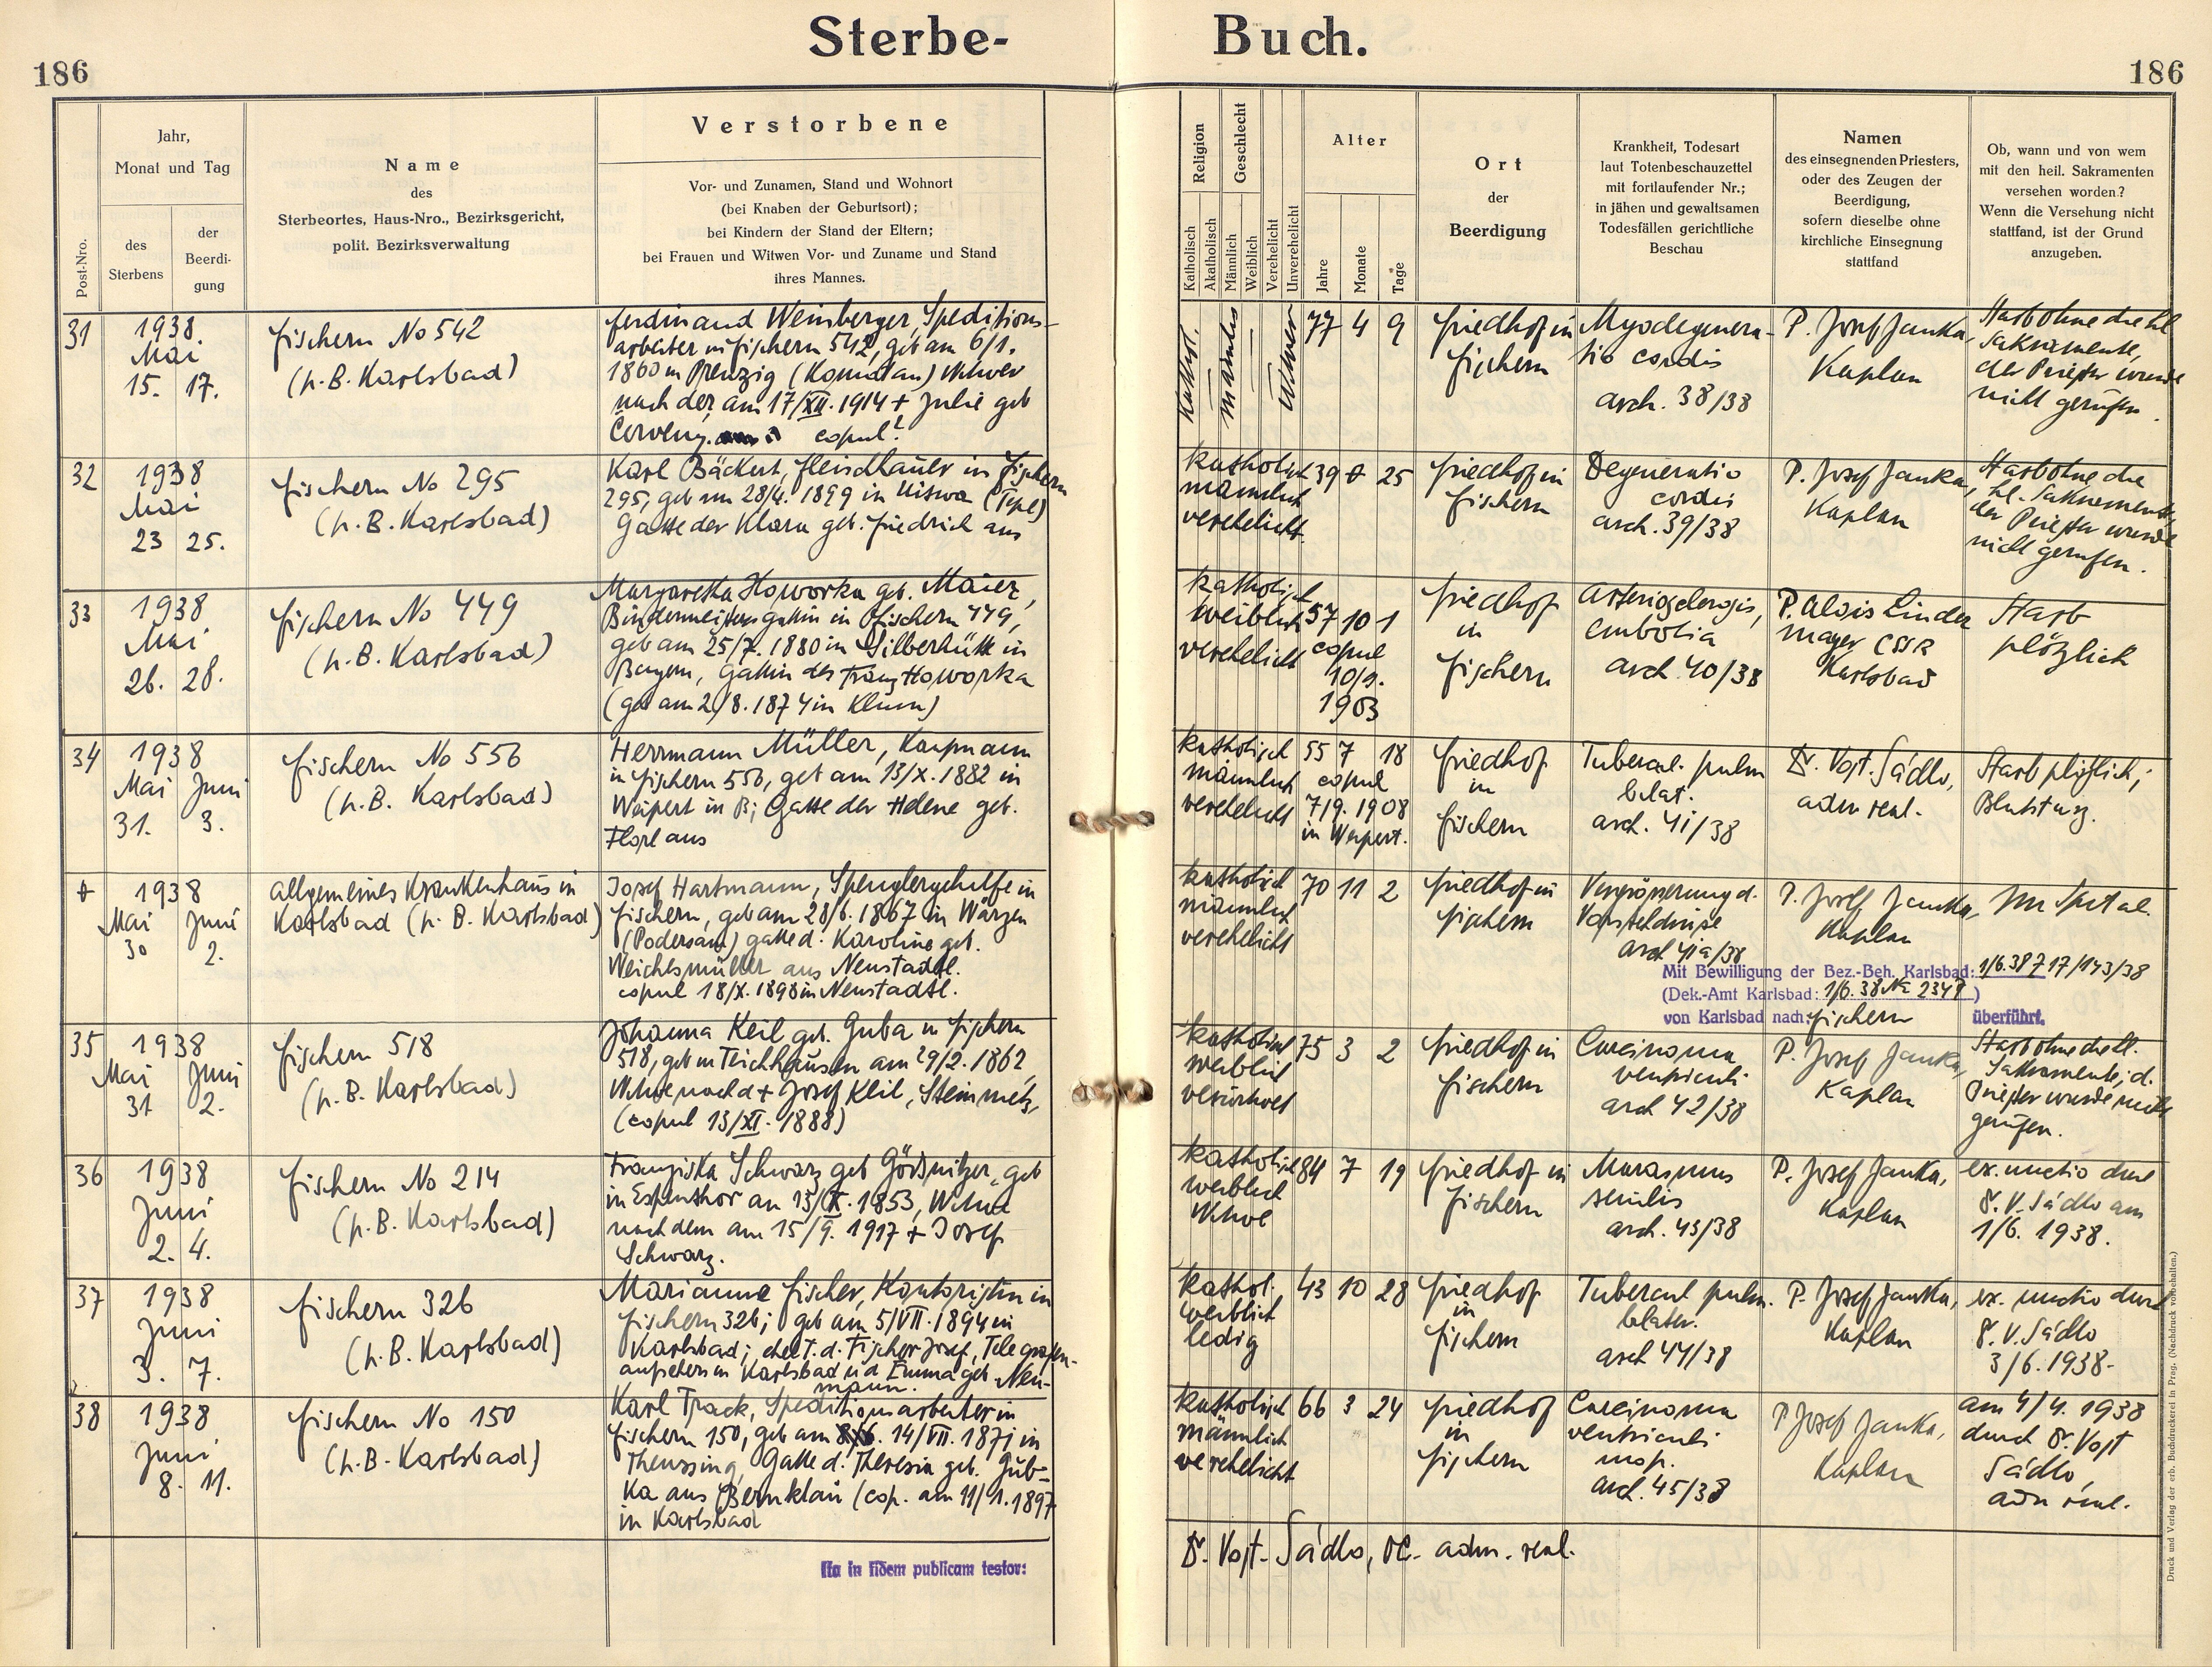 Sterbe-
Buch.
186
186
Post-Nro.
Jahr,
Monat und Tag
des
Sterbens
der
Beerdi-
gung
Name
des
Sterbeortes, Haus-Nro., Bezirksgericht,
polit. Bezirksverwaltung
Verstorbene
Vor- und Zunamen, Stand und Wohnort
(bei Knaben der Geburtsort);
bei Kindern der Stand der Eltern;
bei Frauen und Witwen Vor- und Zuname und Stand
ihres Mannes.
Religion
Katholisch
Akatholisch
Geschlecht
Männlich
Weiblich
Verehelicht
Unverehelicht
Alter
Jahre
Monate
Tage
Ort
der
Beerdigung
Krankheit, Todesart
laut Totenbeschauzettel
mit fortlaufender Nr.;
in jähen und gewaltsamen
Todesfällen gerichtliche
Beschau
Namen
des einsegnenden Priesters,
oder des Zeugen der
Beerdigung,
sofern dieselbe ohne
kirchliche Einsegnung
stattfand
Ob, wann und von wem
mit den heil. Sakramenten
versehen worden?
Wenn die Versehung nicht
stattfand, ist der Grund
anzugeben.
31
1938.
Mai
15. 17.
Fischern No 542
(p. B. Karlsbad)
Ferdinand Weinberger, Speditions-
arbeiter in Fischern 542, geb am 6/1.
1860 in (Komotau) Witwer
nach der am 17/XII. 1914 + Julie geb
Červeny. copul?
Kathol.
männlich
Witwer
77 4 9
Friedhof in
Fischern
Myodegenera-
tio cordis
arch. 38/38
P. Josef Janka,
Kaplan
Starb ohne die hl
Sakramente,
der Priester wurde
nicht gerufen.
32
1938
Mai
23 25.
Fischern No 295
(p. B. Karlsbad)
Karl Bäckert, Fleischhauer in Fischern
295, geb am 28/4. 1899 in Uitwa (Tepl)
Gatte der Klara geb. Friedrich aus
katholisch
männlich
verehelicht
39 0 25
Friedhof in
Fischern
Degeneratio
cordis
arch. 39/38
P. Josef Janka,
Kaplan
Starb ohne die
hl. Sakramente,
der Priester wurde
nicht gerufen.
33
1938
Mai
26. 28.
Fischern No 449
(p. B. Karlsbad)
Margaretha Howorka geb. Maier,
Bindermeistersgattin in Fischern 449,
geb am 25/7. 1880 in Silberhütte in
Bayern, Gattin des Franz Howorka
(geb am 2/8. 1874 in Klum)
katholisch
weiblich
verehelicht
57 10 1
copul
10/9.
1903
Friedhof
in
Fischern
Arteriosclerosis,
embolia
arch. 40/38
P. Alois Linder
mayer CSSR
Karlsbad
Starb
plötzlich
34
1938
Mai Juni
31. 3.
Fischern No 556
(p. B. Karlsbad)
Herrmann Müller, Kaufmann
in Fischern 556, geb am 13/X. 1882 in
Weipert in B; Gatte der Helene geb.
aus
katholisch
männlich
verehelicht
55 7 18
copul
7/9. 1908
in Weipert.
Friedhof
in
Fischern
Tubercul. pulm
bilat.
arch. 41/38
Dr. Vojt. Sádlo,
adm real.
Starb plötzlich;
Blutsturz.
+
1938
Mai Juni
30 2.
Allgemeines Krankenhaus in
Karlsbad (p. B. Karlsbad)
Josef Hartmann, Spenglergehilfe in
Fischern, geb am 28/6. 1867 in Wärzen
(Podersam) gatte d. Karoline geb.
Weichlsmüller aus Neustadtl.
copul 18/X. 1898 in Neustadtl.
katholisch
männlich
verehelicht
70 11 2
Friedhof in
Fischern
Vergrösserung d.
Vorsteldrüse
arch 41a/38
P. Josef Janka,
Kaplan
Im Spital.
Mit Bewilligung der Bez.-Beh. Karlsbad: 1/6.38 717/143/38
(Dek.-Amt Karlsbad: 1/6. 38 No 2347)
von Karlsbad nach: Fischern überführt.
35
1938
Mai Juni
31 2.
Fischern 518
(p. B. Karlsbad)
Johanna Keil geb. Guba in Fischern
518, geb in Teichhäusen am 29/2. 1862,
Witwe nach d + Josef Keil, Steinmetz,
(copul 13/XI. 1888)
katholisch
weiblich
verwitwet
75 3 2
Friedhof in
Fischern
Carcinoma
ventriculi
arch 42/38
P. Josef Janka,
Kaplan
Starb ohne die hl.
Sakramente; d.
Priester wurde nicht
gerufen.
36
1938
Juni
2. 4.
Fischern No 214
(p. B. Karlsbad)
Franziska Schwarz geb Gössnitzer, geb
in Espenthor am 13/X. 1853, Witwe
nach dem am 15/9. 1917 + Josef
Schwarz.
katholisch
weiblich
Witwe
84 7 19
Friedhof in
Fischern
Marasmus
senilis
arch. 43/38
P. Josef Janka,
Kaplan
ex. unctio durch
Dr. V. Sádlo am
1/6. 1938.
37
1938
Juni
3. 7.
Fischern 326
(p. B. Karlsbad)
Marianne Fischer, Kontoristin in
Fischern 326; geb am 5/VII. 1894 in
Karlsbad; ehel T. d. Fischer Josef, Telegrafen-
aufsehers in Karlsbad u d Emma geb. Neu-
mann.
kathol.,
weiblich
ledig
43 10 28
Friedhof
in
Fischern
Tubercul pulm.
bilater.
arch 44/38
P. Josef Janka,
Kaplan
ex. unctio durch
Dr. V. Sádlo
3/6. 1938-
38
1938
Juni
8. 11.
Fischern No 150
(p. B. Karlsbad)
Karl Track, Speditionsarbeiter in
Fischern 150, geb am 14/VII. 1871 in
Theussing, Gatte d. Theresia geb. Gub-
ka aus Bernklau (cop. am 11/1. 1897
in Karlsbad
katholisch
männlich
verehelicht
66 3 24
Friedhof
in
Fischern
Carcinoma
ventriculi
inop.
arch. 45/38
P Josef Janka,
Kaplan
am 4/4. 1938
durch Dr. Vojt
Sádlo,
adm real.
Ita in fidem publicam testor:
Dr. Vojt. Sádlo, OC. adm. real.
Druck und Verlag der erb. Buchdruckerei in Prag. (Nachdruck vorbehalten.)